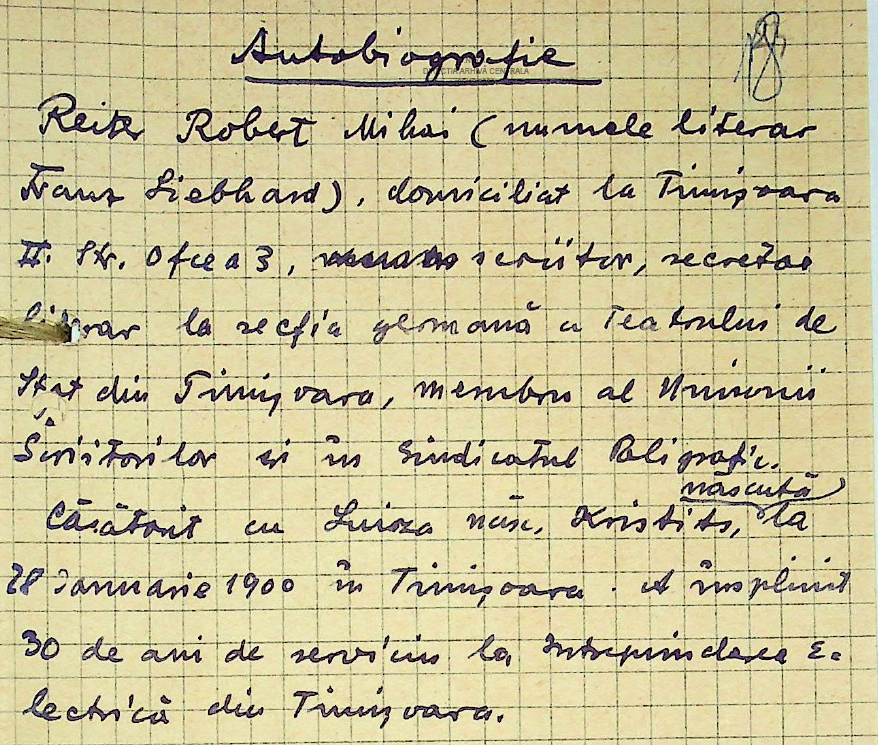 Autobiografie
DIRECȚIA ARHIVĂ CENTRALĂ
Reiter Robert Mihai (numele literar
Franz Liebhard), domiciliat la Timișoara
II. Str. Ofcea 3, scriitor, secretar
literar la secția germană a Teatrului de
Stat din Timișoara, membru al Uniunii
Scriitorilor și în Sindicatul Poligrafic.
născută
Căsătorit cu Luiza născ. Kristits, la
28 Ianuarie 1900 în Timișoara. A împlinit
30 de ani de serviciu la Intreprinderea E-
lectrică din Timișoara.